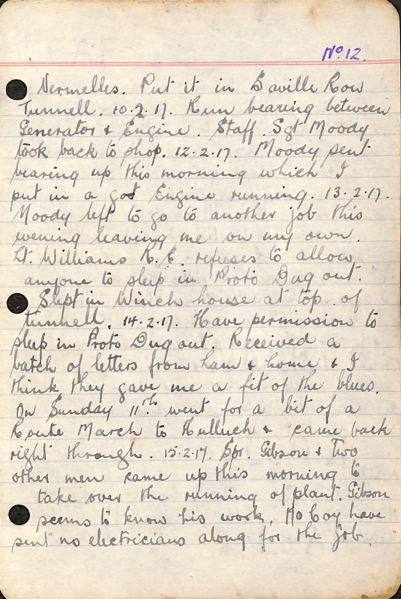 No 12.
Vermelles. Put it in Saville Row
Tunnell. 10.2.17. Run bearing between
Generator & Engine. Staff. Sgt Moody
took back to shop. 12.2.17. Moody sent
bearing up this morning which I
put in & got Engine running. 13.2.17.
Moody left to go to another job this
evening leaving me on my own.
Lt Williams R.E. refuses to allow
anyone to sleep in Proto Dug out.
Slept in Winch house at top of
tunnell. 14.2.17. Have permission to
sleep in Proto Dug out. Received a
batch of letters from home & I
think they gave me a fit of the blues.
On Sunday 11th went for a bit of a
Route March to Hulluch & came back
right through. 15.2.17. Spr. Gibson & Two
other men came up this morning to
take over the running of plant. Gibson
seems to know his work. Coy have
sent no electricians along for the job.